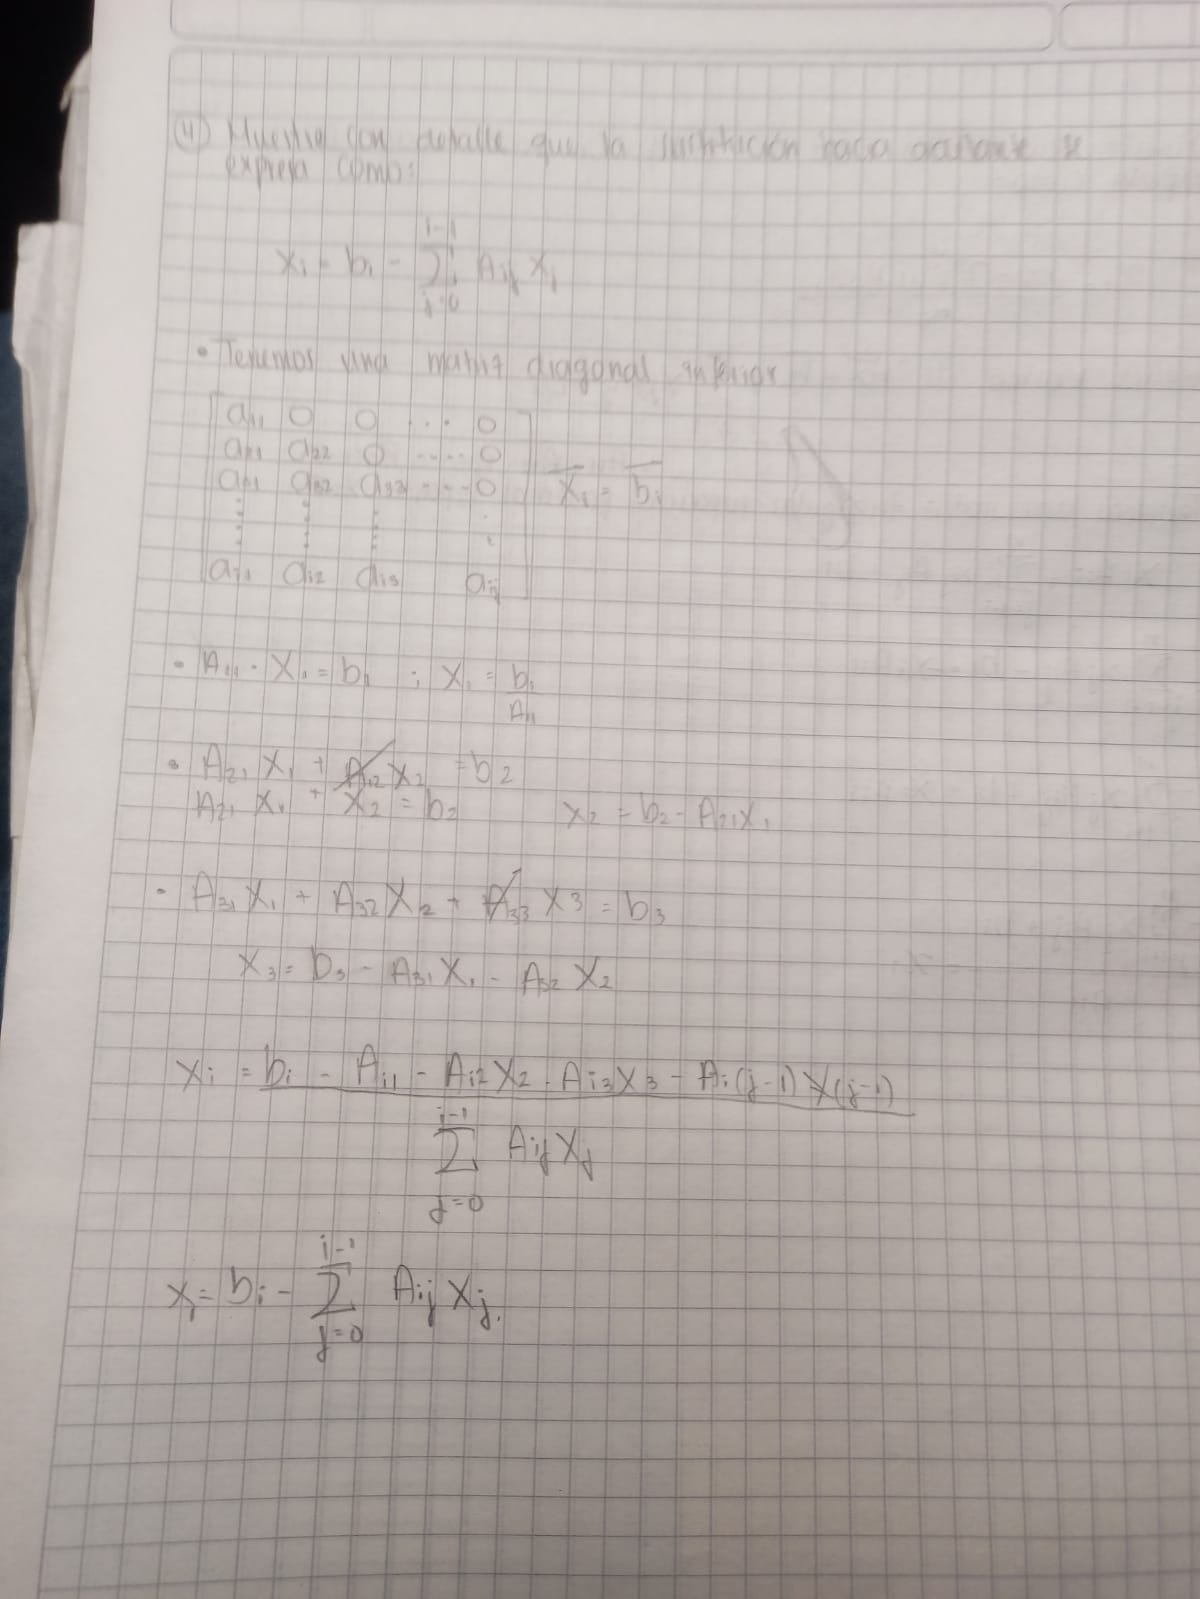 4) Muestre con detalle que la sustitución hacia adelante se
expresa como:
i-1
xi = bi - Σ Aij xj
j=0
• Tenemos una matriz diagonal inferior
a11 0 0 ... 0
a21 a22 0 ..... 0
a31 a32 a33 ..... 0 x1 = bi
ai1 ai2 ai3 aij
• A11 · X1 = b1 ; X1 = b1
A11
• A21 X1 + A22 X2 = b2
A21 X1 + X2 = b2 X2 = b2 - A21X1
• A31 X1 + A32 X2 + A33 X3 = b3
X3 = b3 - A31 X1 - A32 X2
Xi = bi - Ai1 - Ai2 X2 - Ai3 X3 - Ai(j-1) X(j-1)
i-1
Σ Aij Xj
j=0
i-1
Xi = bi - Σ Aij Xj.
j=0